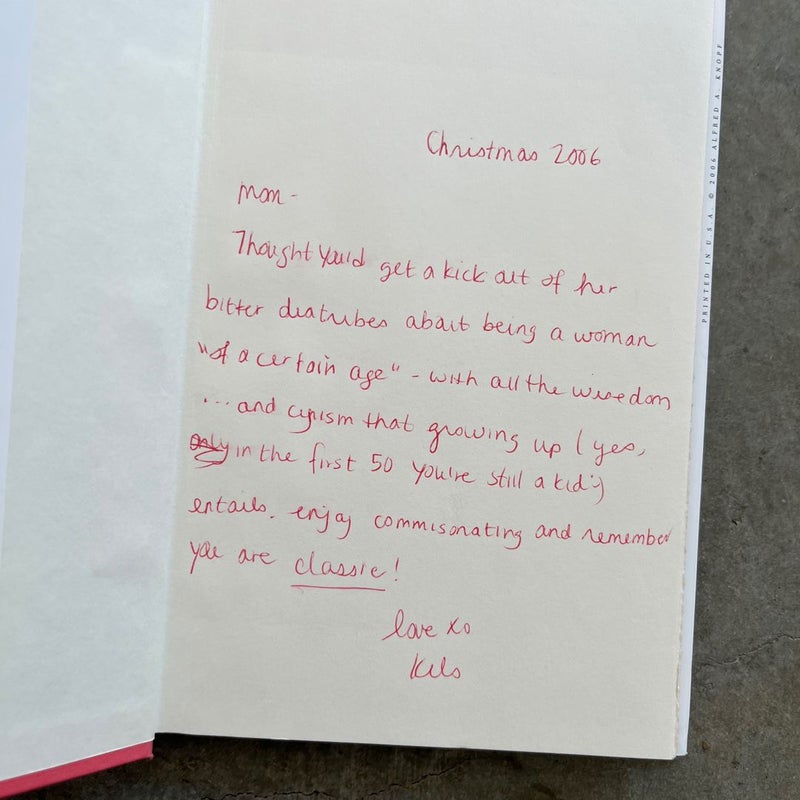 Christmas 2006
Mom -
Thought you'd get a kick out of her
bitter diatribes about being a woman
"of a certain age" - with all the wisedom
... and cynism that growing up (yes,
in the first 50 you're still a kid :)
entails. enjoy commisonating and remember
you are classic!
love xo
Kels
PRINTED IN U.S.A. © 2006 ALFRED A. KNOPF